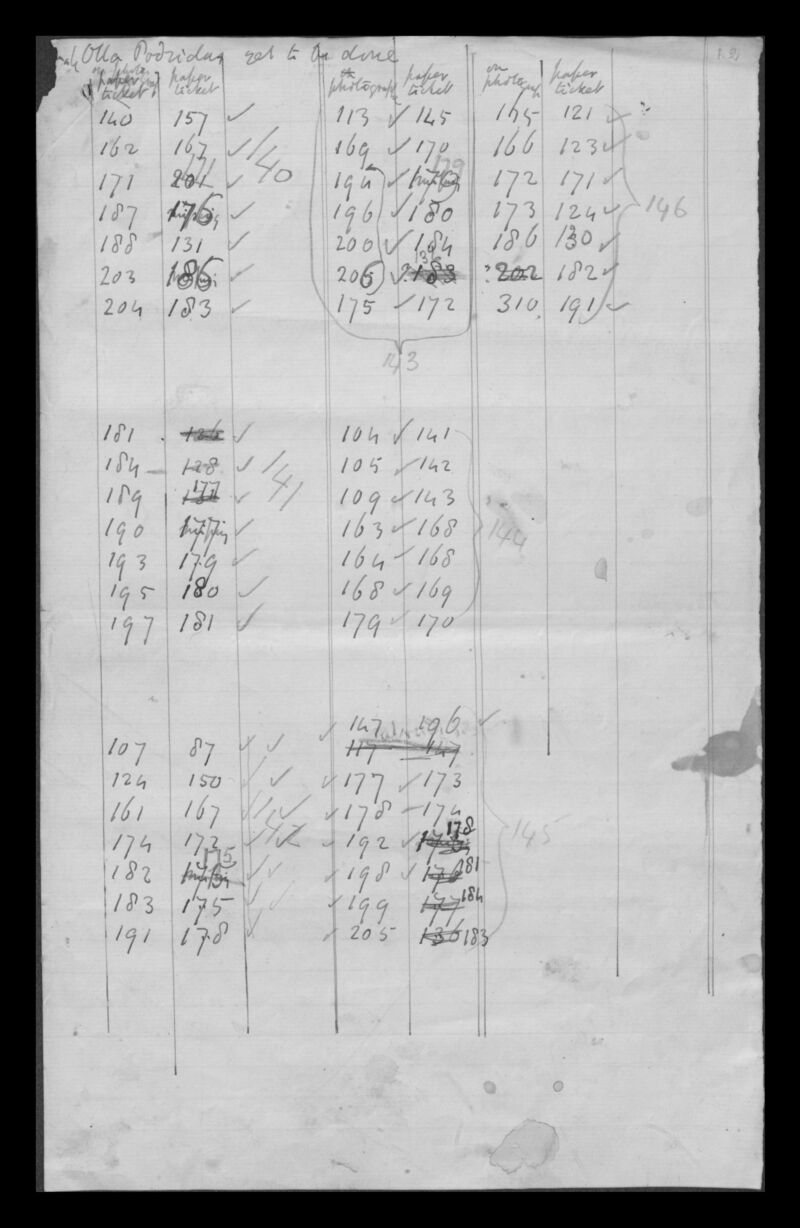 Olla Podridas yet to be done
on photo paper on photograph paper on photograph paper
ticket ticket ticket ticket
140 157 ✓ 113 ✓ 145 155 121 ✓
162 167 ✓ 140 169 ✓ 170 166 123 ✓
171 201 ✓ 194 ✓ 179 172 171 ✓
187 176 ✓ 196 ✓ 180 173 124 ✓ 146
188 131 ✓ 200 ✓ 184 186 130 ✓
203 186 ✓ 206 ✓ 183 202 182 ✓
204 183 ✓ 175 ✓ 172 310 191 ✓
143
181 126 ✓ 104 ✓ 141
184 128 ✓ 141 105 ✓ 142
189 177 ✓ 109 ✓ 143
190 177 ✓ 163 ✓ 168 144
193 179 ✓ 164 ✓ 168
195 180 ✓ 168 ✓ 169
197 181 ✓ 179 ✓ 170
✓ 147 196 ✓
107 87 ✓ ✓ 117 147
124 150 ✓ ✓ ✓ 177 ✓ 173
161 167 ✓ ✓ ✓ 178 174
174 172 ✓ 142 ✓ 192 ✓ 178 145
182 175 ✓ ✓ ✓ 198 ✓ 176 181
183 175 ✓ ✓ ✓ 199 177 184
191 178 ✓ ✓ 205 136 183